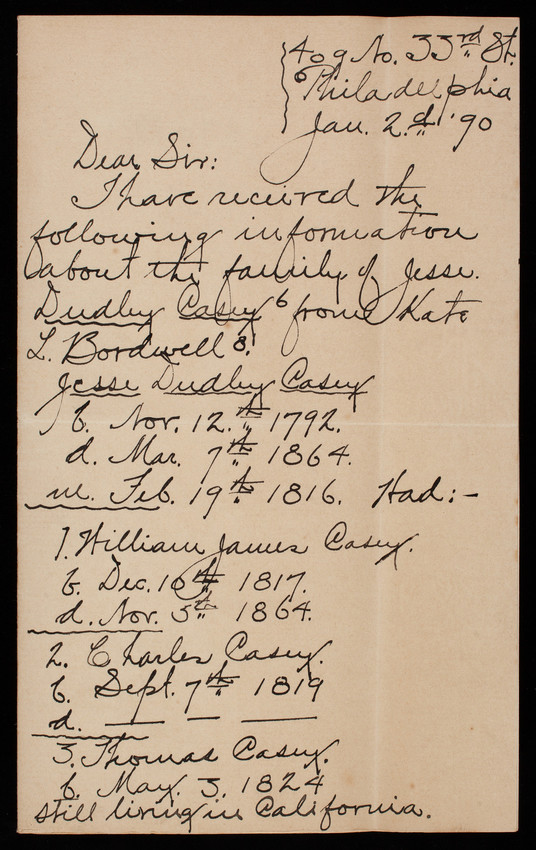 409 No. 33rd St.
Philadelphia
Jan. 2.d '90
Dear Sir:
I have received the
following information
about the family of Jesse.
Dudley Casey 6 from Kate
L. Bordwell 8.
Jesse Dudley Casey
b. Nov. 12.th 1792.
d. Mar. 7th 1864.
m. Feb. 19th 1816. Had:-
1. William James Casey.
b. Dec. 10th 1817.
d. Nov. 5th 1864.
2. Charles Casey.
b. Sept. 7th 1819
d. — — —
3. Thomas Casey.
b. May. 3, 1824
still living in California.